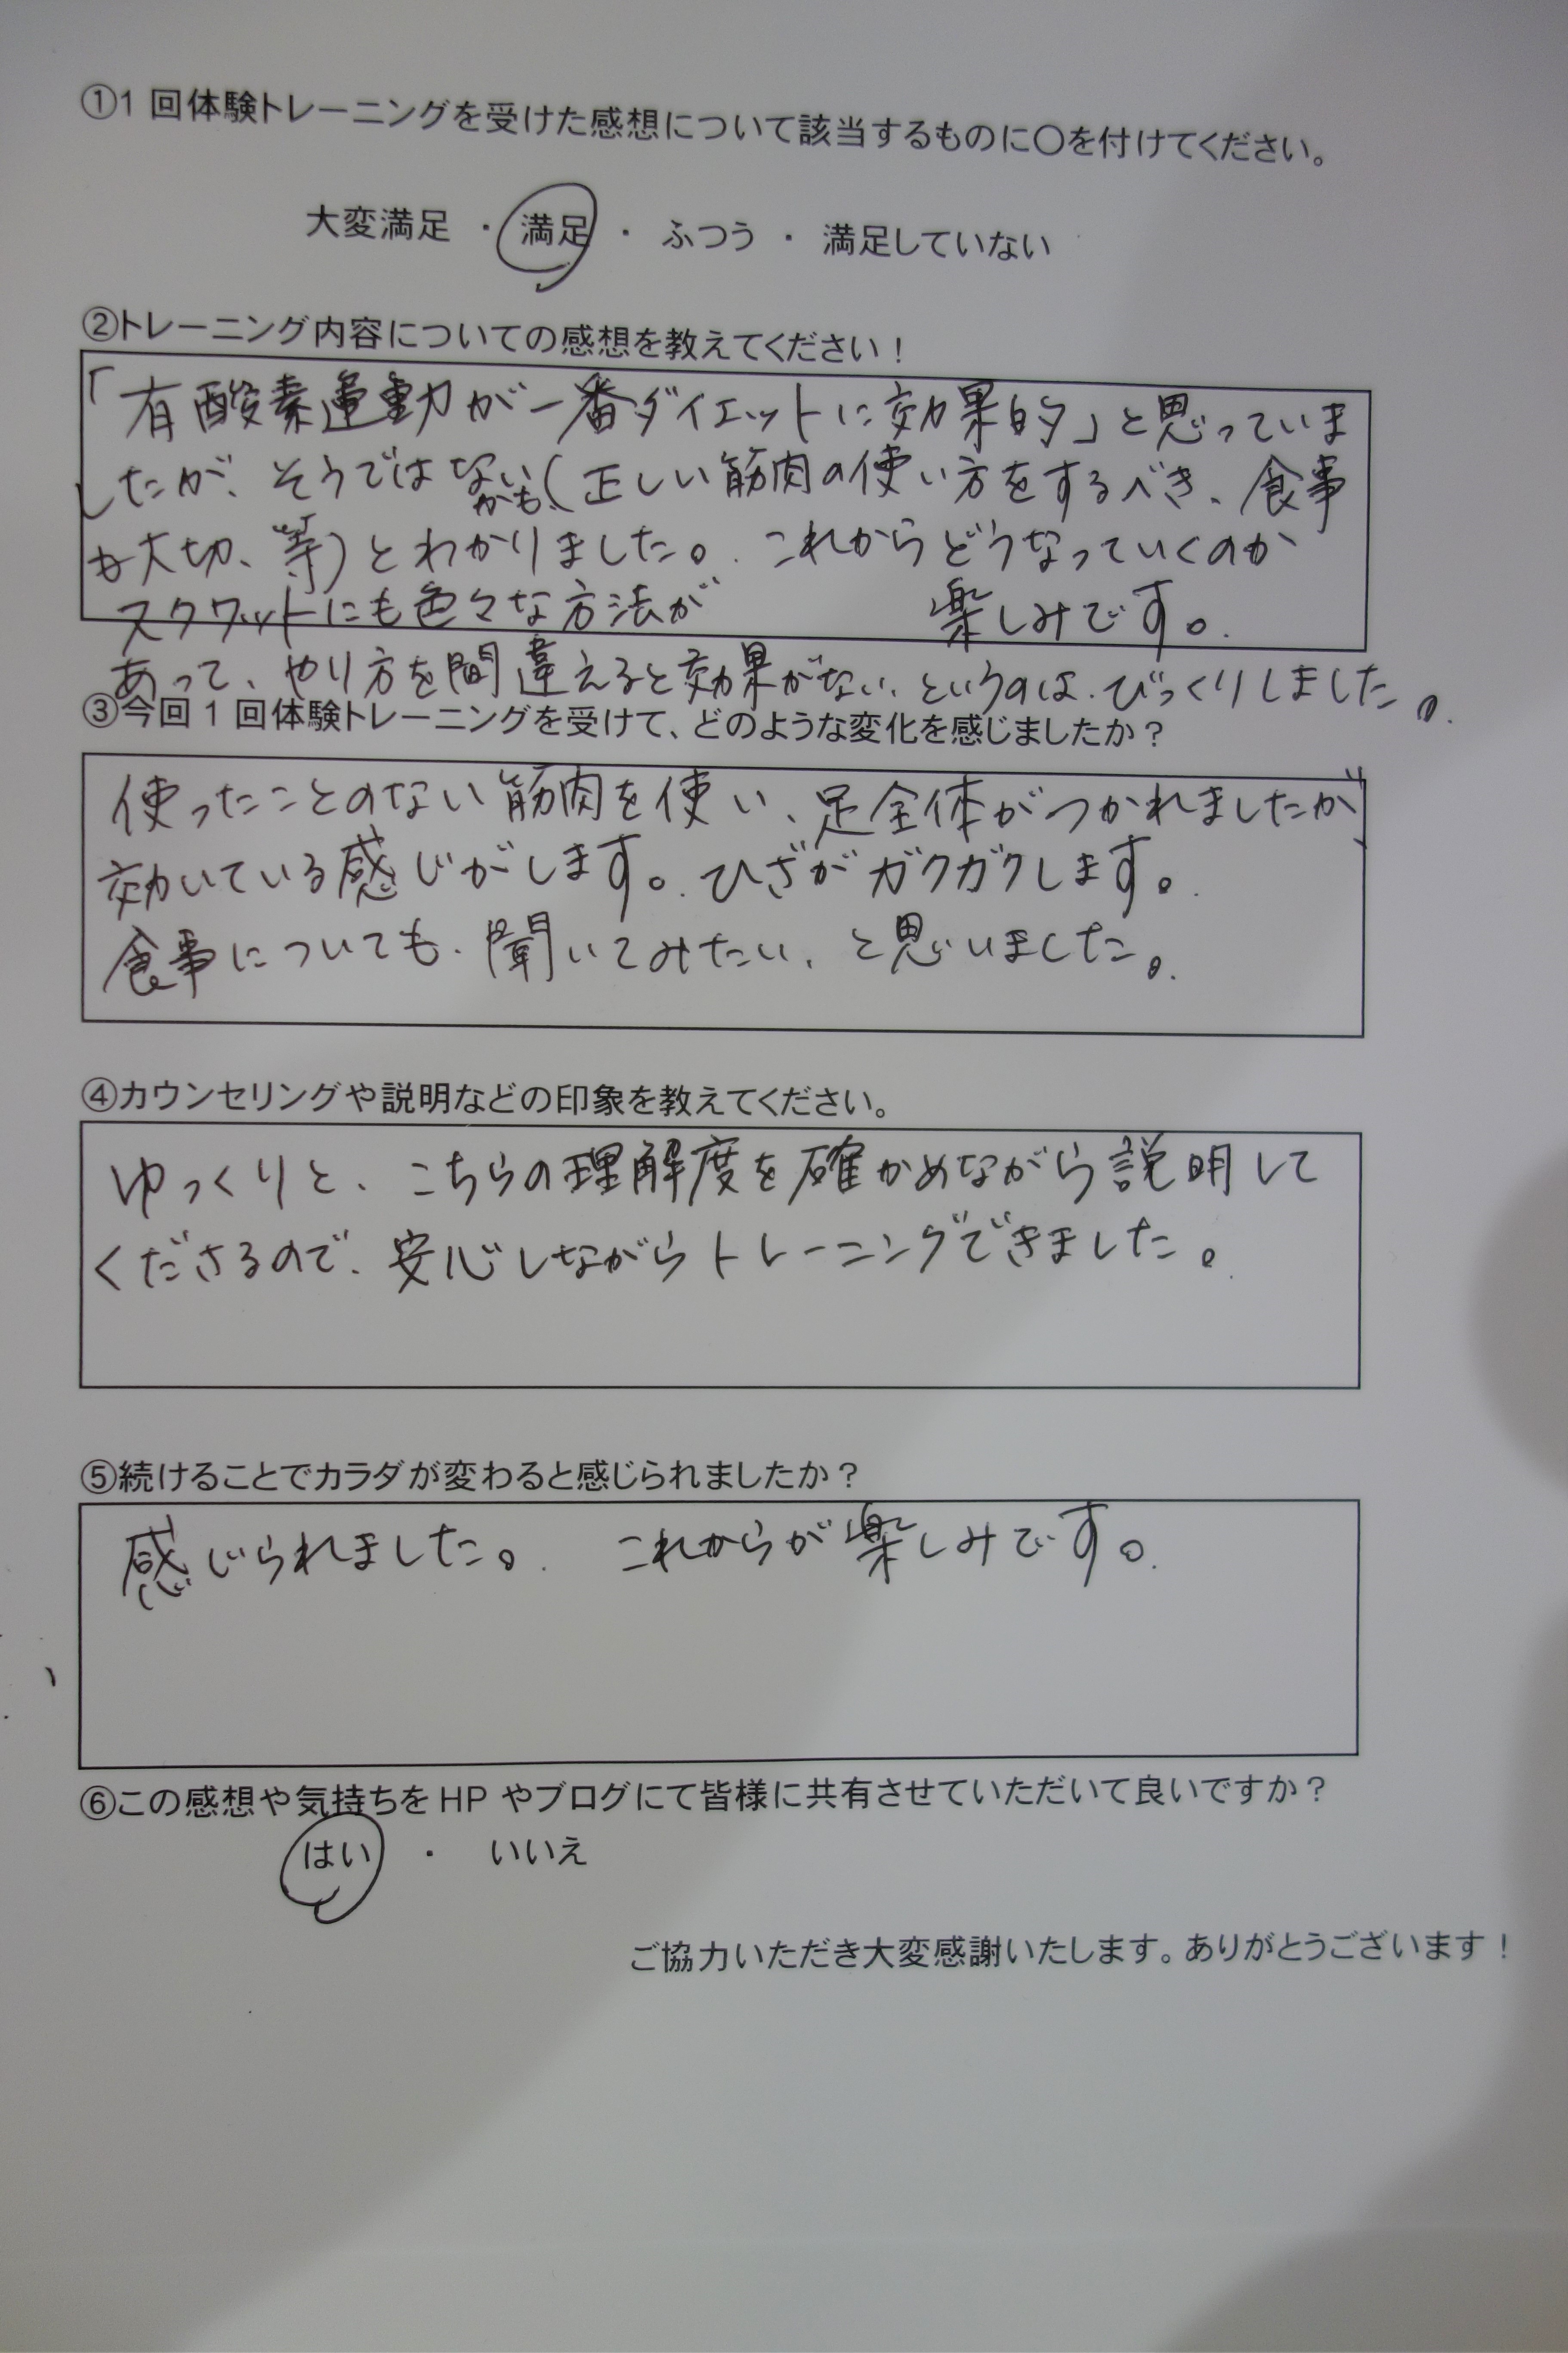 ①1 回体験トレーニングを受けた感想について該当するものに〇を付けてください。
大変満足 ・ 満足 ・ ふつう ・ 満足していない
②トレーニング内容についての感想を教えてください！
「有酸素運動が一番ダイエットに効果的」と思っていま
したが、そうではないかも、(正しい筋肉の使い方をするべき、食事
も大切、等)とわかりました。これからどうなっていくのか
楽しみです。
スクワットにも色々な方法が
あって、やり方を間違えると効果がない、というのは、びっくりしました。
③今回 1 回体験トレーニングを受けて、どのような変化を感じましたか？
使ったことのない筋肉を使い、足全体がつかれましたが、
効いている感じがします。ひざがガクガクします。
食事についても、聞いてみたい、と思いました。
④カウンセリングや説明などの印象を教えてください。
ゆっくりと、こちらの理解度を確かめながら説明して
くださるので、安心しながらトレーニングできました。
⑤続けることでカラダが変わると感じられましたか？
感じられました。 これからが楽しみです。
⑥この感想や気持ちを HP やブログにて皆様に共有させていただいて良いですか？
はい ・ いいえ
ご協力いただき大変感謝いたします。ありがとうございます！